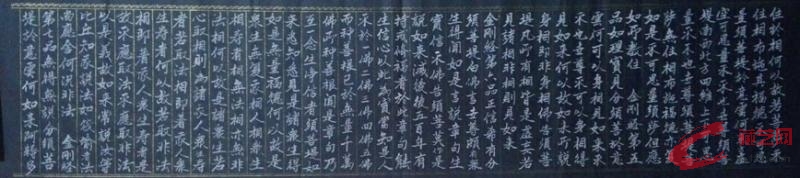 住於相何以故若菩薩不
住相布施其福德不可思
量須菩提於意云何東方虛
空可思量不不也世尊須菩
提南西北方四維上下虛空可思
量不不也世尊須菩提菩
薩無住相布施福德亦復
如是不可思量須菩提菩薩但應
如所教住 金剛經第五
品如理實見分須菩提於意
云何可以身相見如來不
不也世尊不可以身相得
見如來何以故如來所說
身相即非身相佛告須菩
提凡所有相皆是虛妄若
見諸相非相則見如來
金剛經第六品正信希有分
須菩提白佛言世尊頗有衆
生得聞如是言說章句生
實信不佛告須菩提莫作是
說如來滅後後五百年有
持戒修福者於此章句能
生信心以此為實當知是人
不於一佛二佛三四佛五佛
而種善根已於無量千萬
佛所種善根聞是章句乃
至一念生淨信者須菩提如
來悉知悉見是諸衆生得
如是無量福德何以故是
衆生無復我相人相衆生
相壽者相無法相亦無非
法相何以故是諸衆生若
心取相則為著我人衆生壽
者若取法相即著我人衆
生壽者何以故若取非法
相即著我人衆生壽者是
故不應取法不應取非法
以是義故如來常說汝等
比丘知我說法如筏喻者法
尚應舍何況非法 金剛經
第七品無得無說分須菩
提於意云何如來得阿耨多